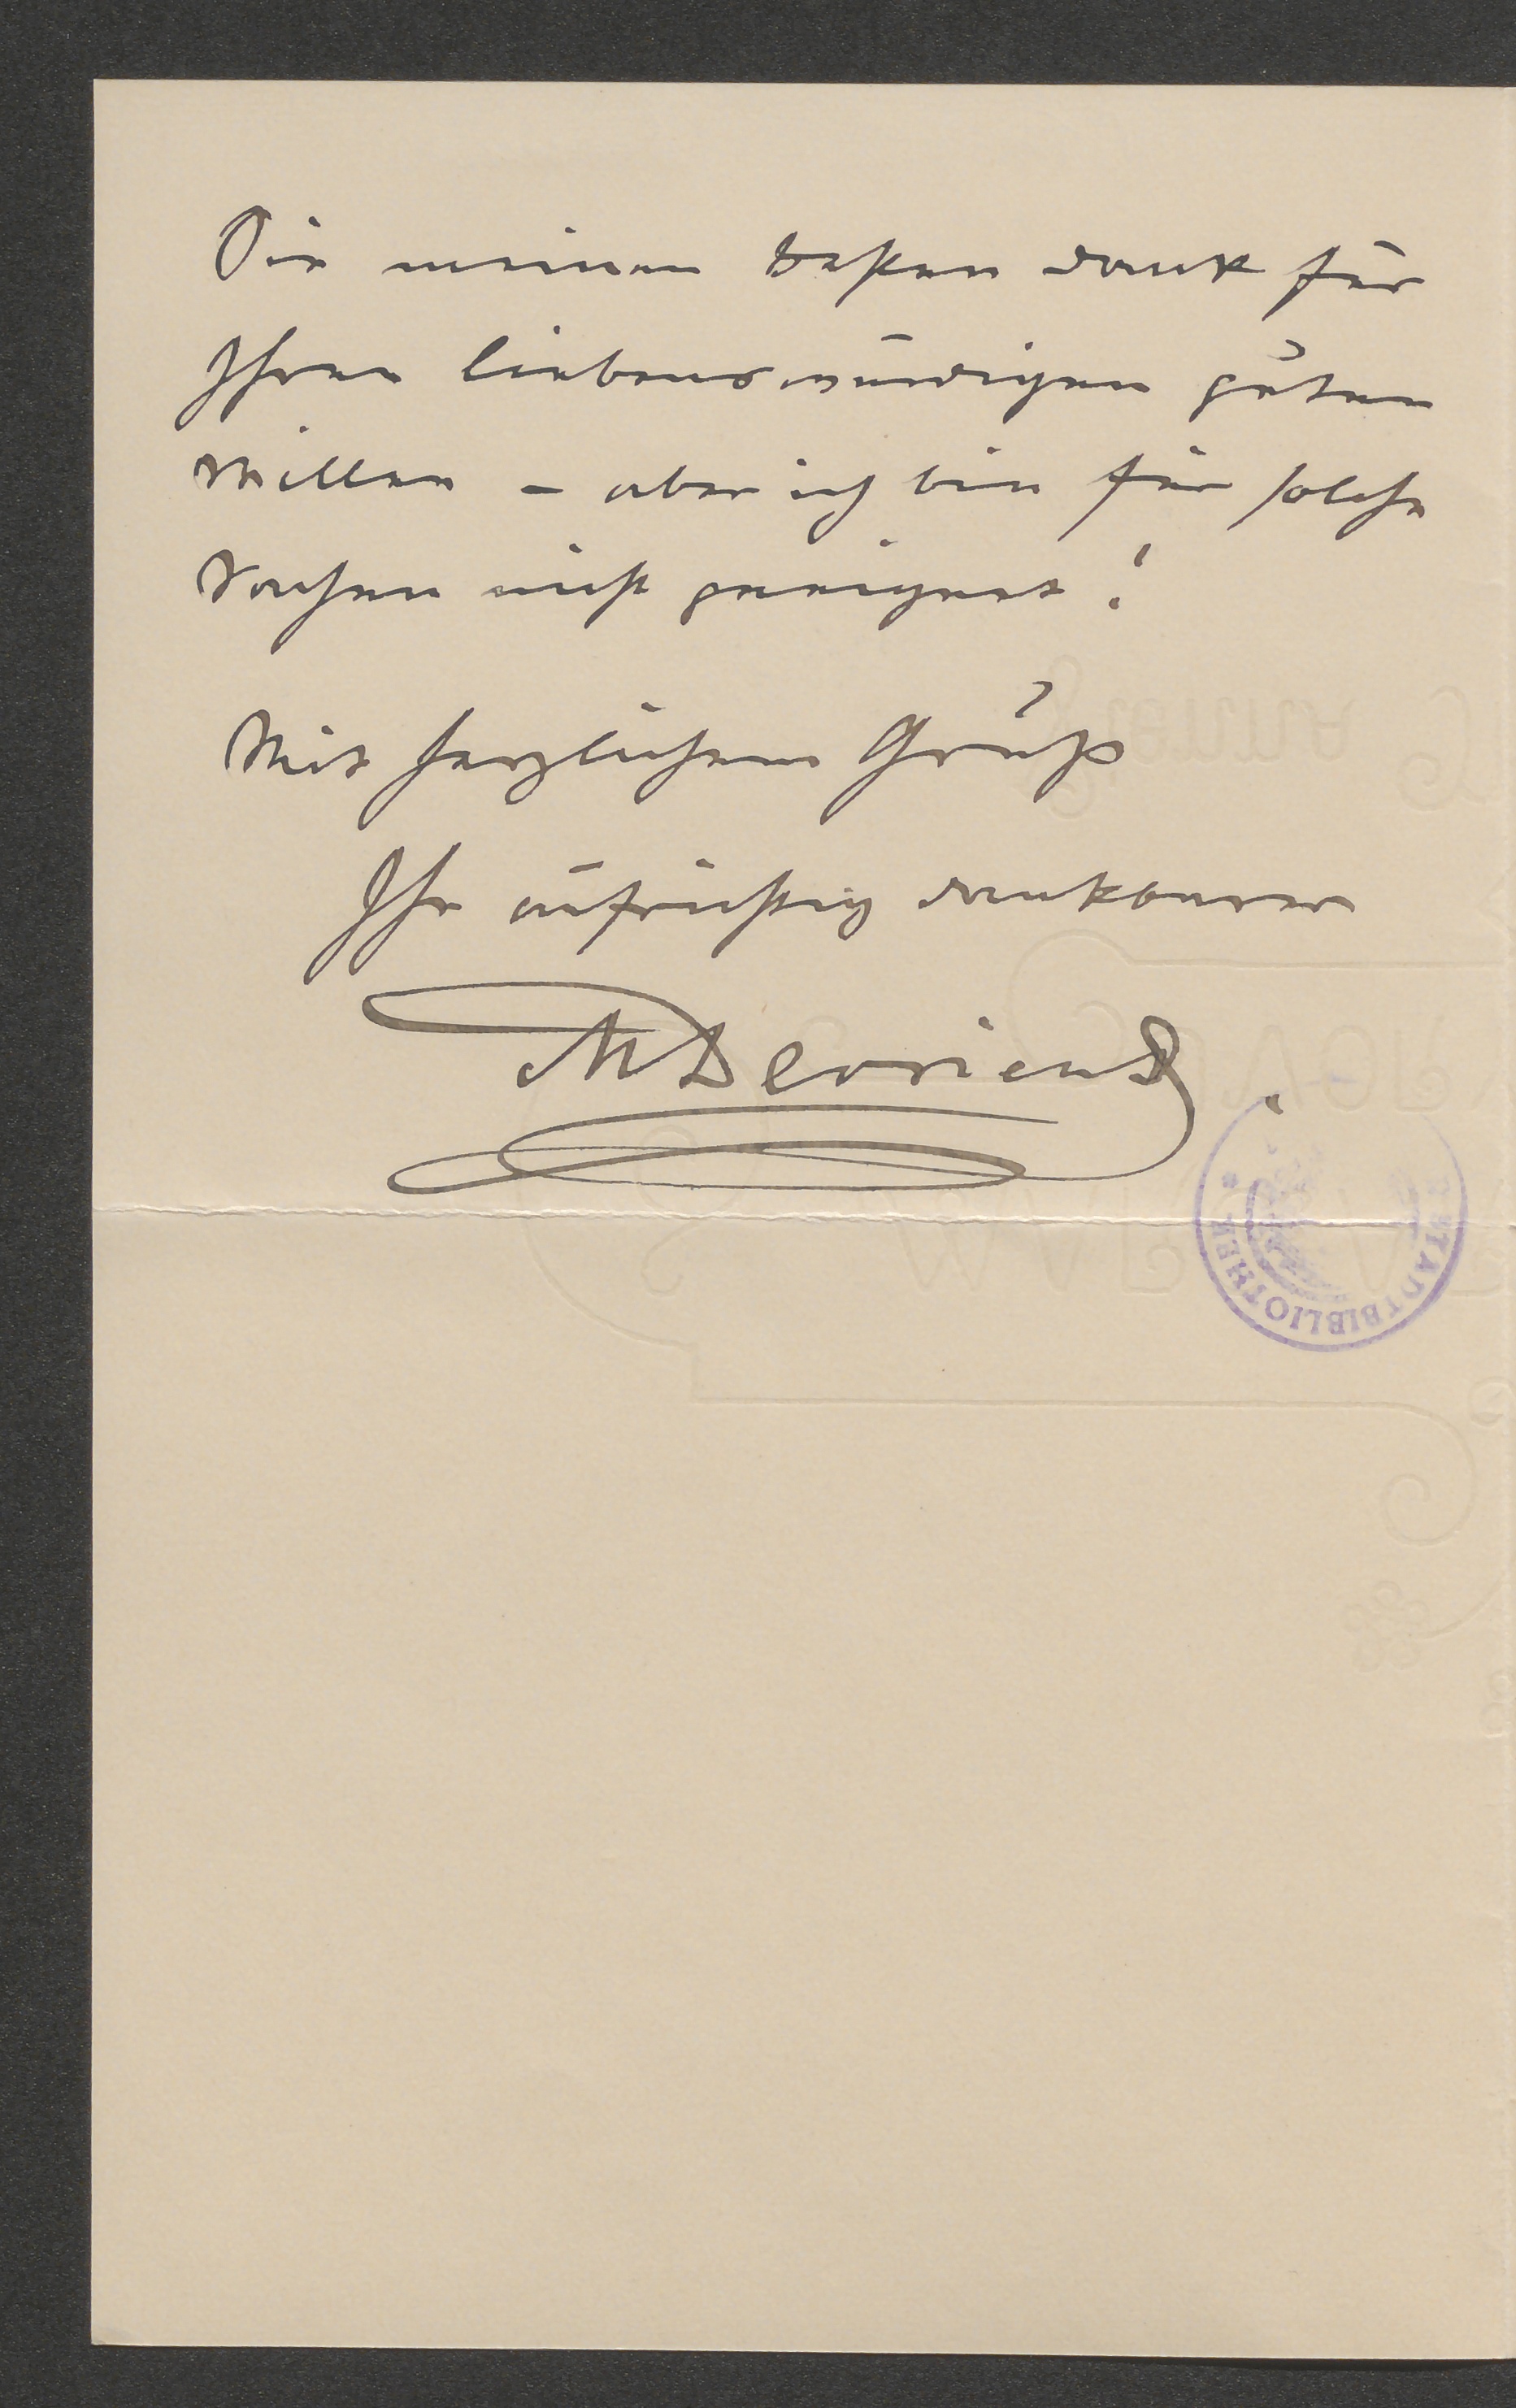 Sie meinen besten Dank für
Ihren liebenswürdigen guten
Willen – aber ich bin für solche
Sachen nicht geeignet!
Mit herzlichem Gruß
Ihr aufrichtig dankbarer
MDevrient
STADTBIBLIOTHEK